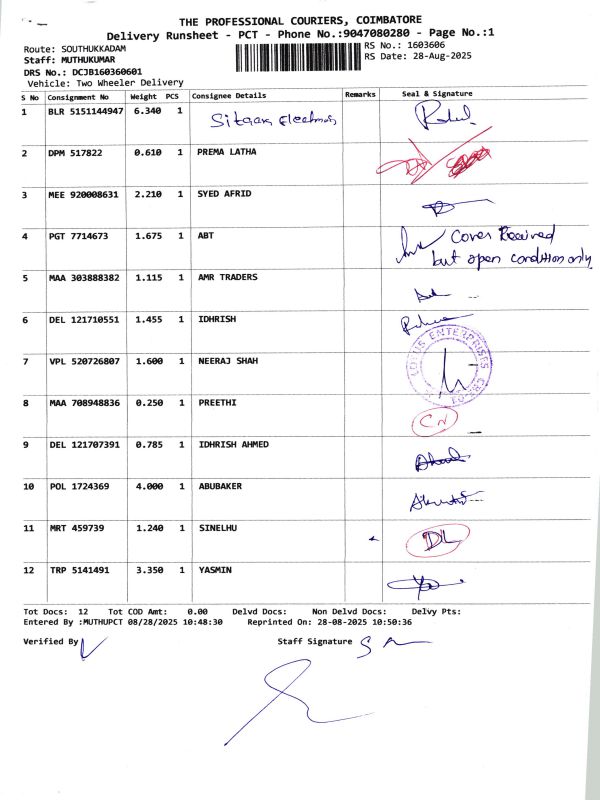 THE PROFESSIONAL COURIERS, COIMBATORE
Delivery Runsheet - PCT - Phone No.:9047080280 - Page No.:1
Route: SOUTHUKKADAM RS No.: 1603606
Staff: MUTHUKUMAR RS Date: 28-Aug-2025
DRS No.: DCJB160360601
Vehicle: Two Wheeler Delivery
S No Consignment No Weight PCS Consignee Details Remarks Seal & Signature
1 BLR 5151144947 6.340 1
2 DPM 517822 0.610 1 PREMA LATHA
3 MEE 920008631 2.210 1 SYED AFRID
4 PGT 7714673 1.675 1 ABT Cover Received
but open condition only
5 MAA 303888382 1.115 1 AMR TRADERS
6 DEL 121710551 1.455 1 IDHRISH
7 VPL 520726807 1.600 1 NEERAJ SHAH LOTUS ENTERPRISES
8 MAA 708948836 0.250 1 PREETHI CN
9 DEL 121707391 0.785 1 IDHRISH AHMED
10 POL 1724369 4.000 1 ABUBAKER
11 MRT 459739 1.240 1 SINELHU DL
12 TRP 5141491 3.350 1 YASMIN
Tot Docs: 12 Tot COD Amt: 0.00 Delvd Docs: Non Delvd Docs: Delvy Pts:
Entered By :MUTHUPCT 08/28/2025 10:48:30 Reprinted On: 28-08-2025 10:50:36
Verified By Staff Signature